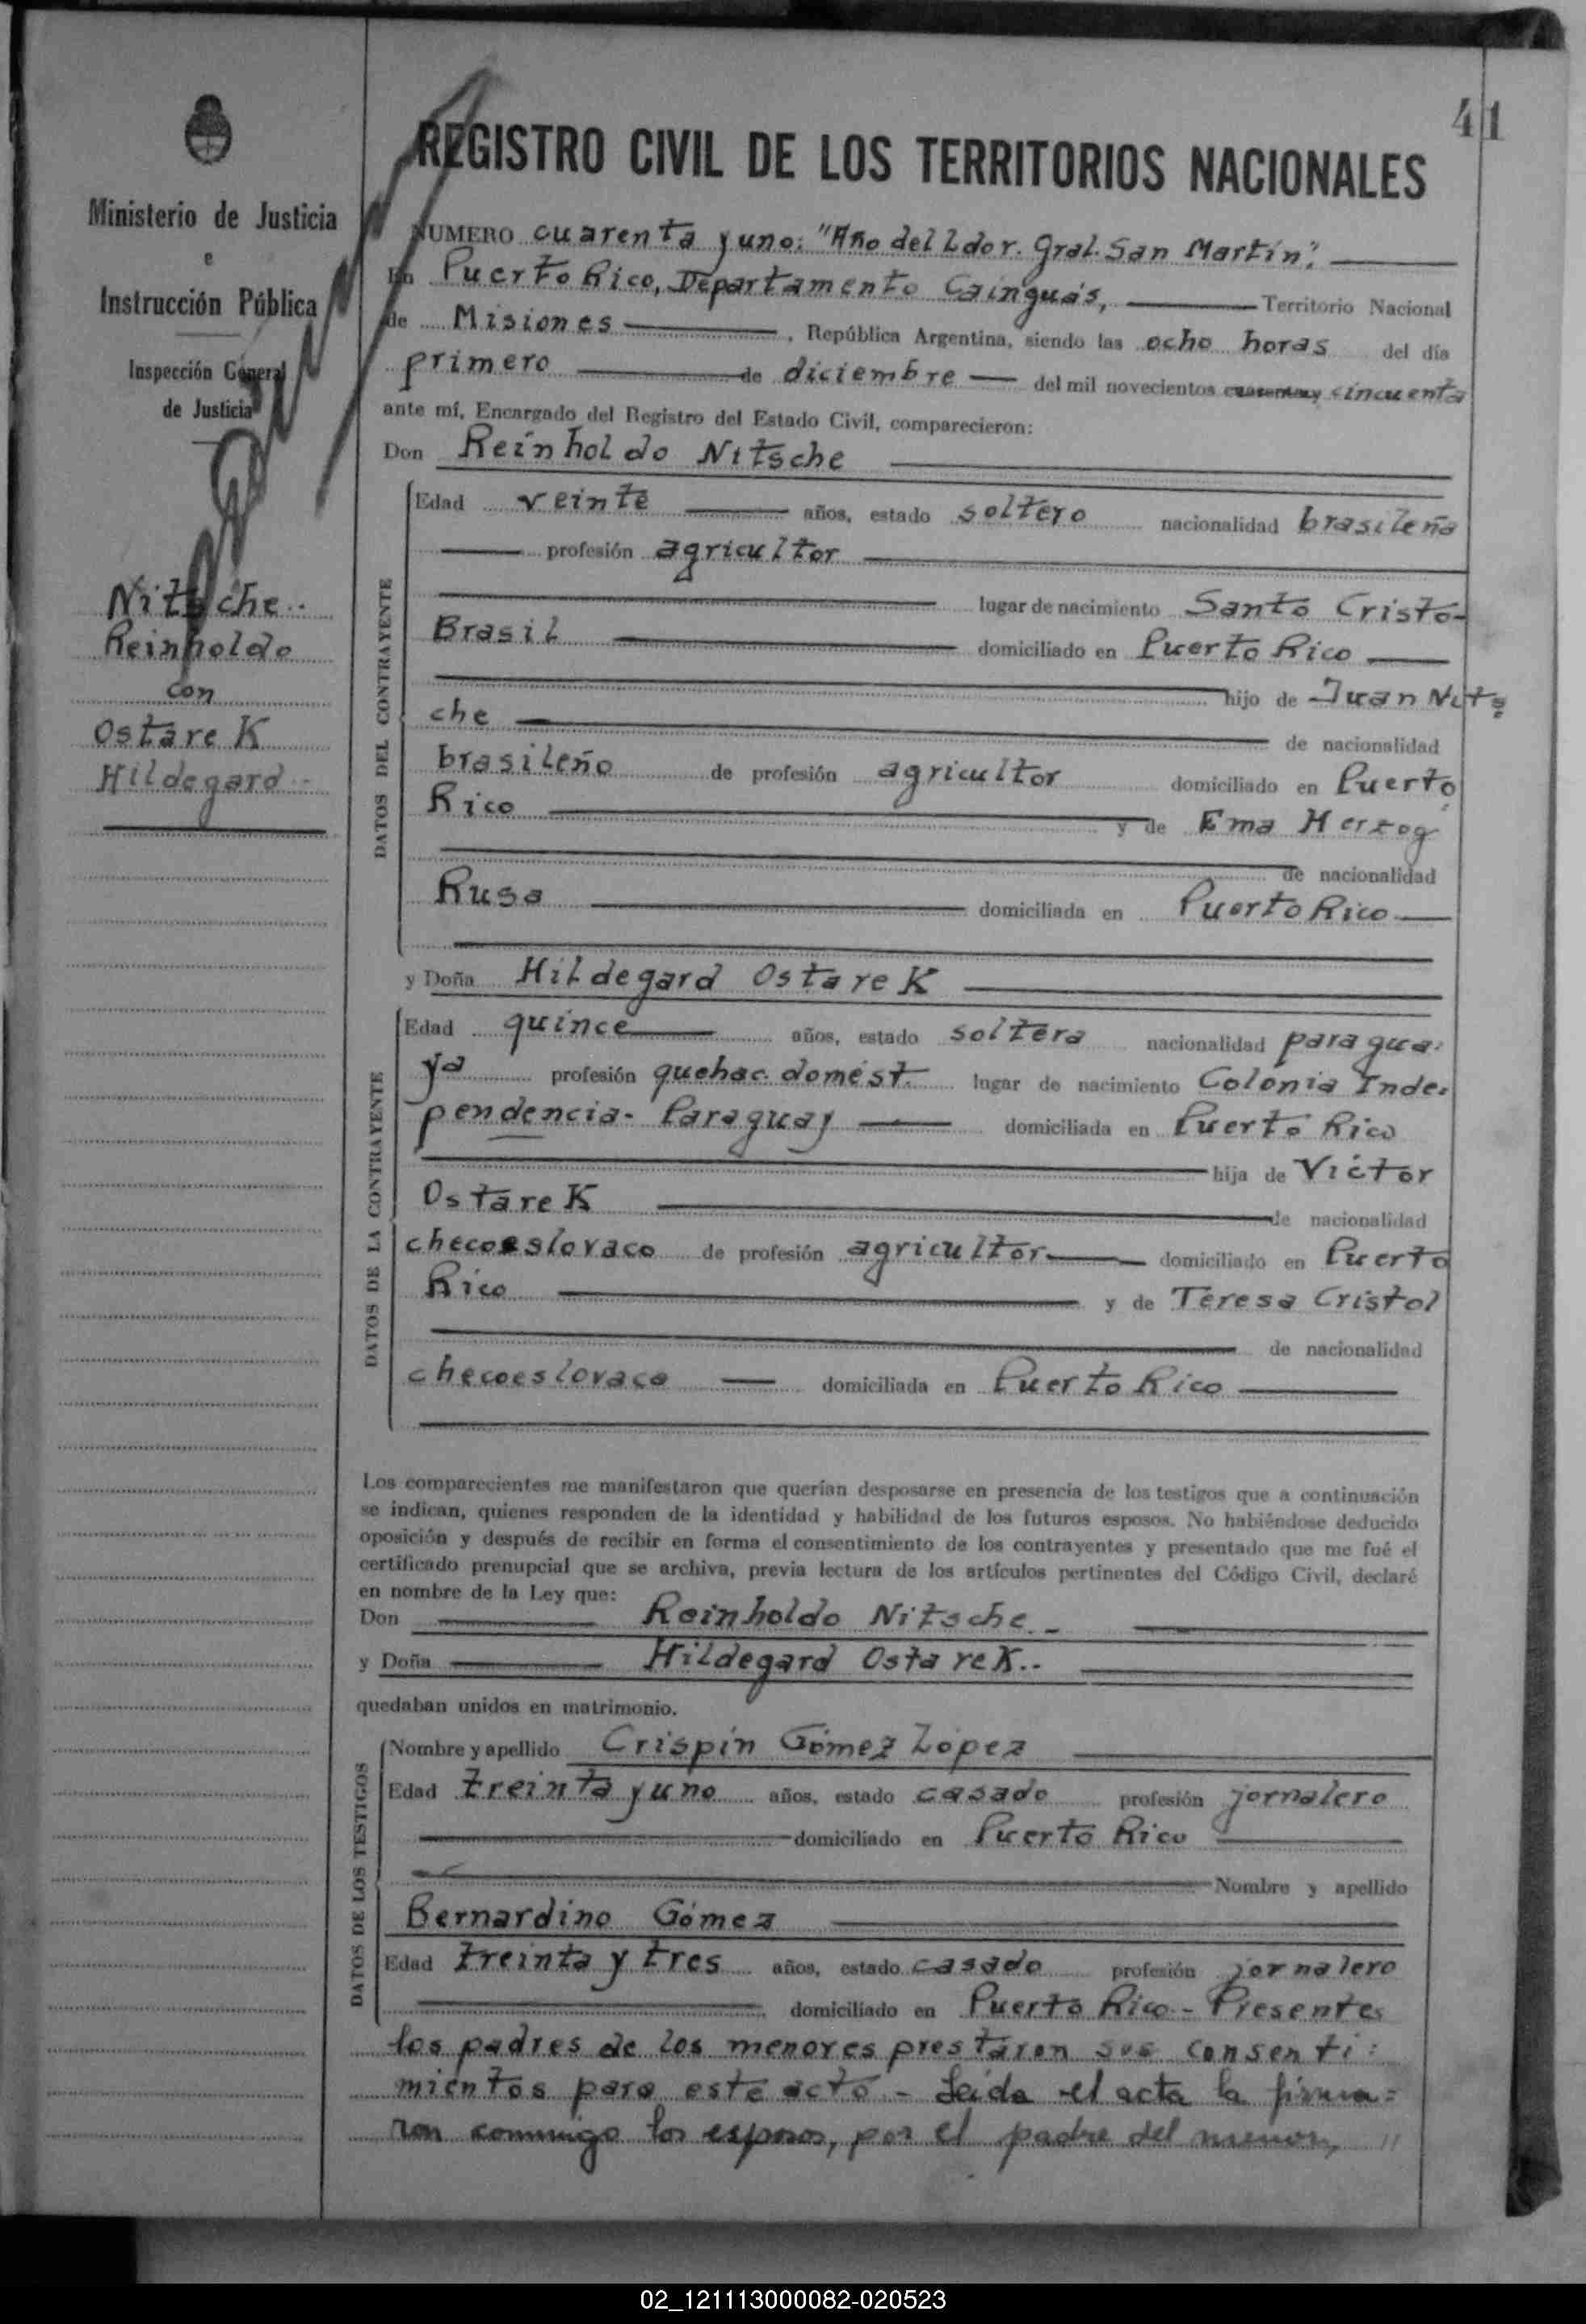 41
Ministerio de Justicia
e
Instrucción Pública
Inspección General
de Justicia
Nitsche..
Reinholdo
con
Ostarek
Hildegard..
REGISTRO CIVIL DE LOS TERRITORIOS NACIONALES
NUMERO cuarenta y uno: "Año del Ldor. Gral. San Martín",
En Puerto Rico, Departamento Cainguás, Territorio Nacional
de Misiones, República Argentina, siendo las ocho horas del día
primero de diciembre del mil novecientos cincuenta
ante mí, Encargado del Registro del Estado Civil, comparecieron:
Don Reinholdo Nitsche
DATOS DEL CONTRAYENTE
Edad veinte años, estado soltero nacionalidad brasileña
profesión agricultor
lugar de nacimiento Santo Cristo-
Brasil domiciliado en Puerto Rico
hijo de Juan Nits
che de nacionalidad
brasileño de profesión agricultor domiciliado en Puerto
Rico y de Ema Herzog
de nacionalidad
Rusa domiciliada en Puerto Rico
y Doña Hildegard Ostarek
DATOS DE LA CONTRAYENTE
Edad quince años, estado soltera nacionalidad paragua:
ya profesión quehac. domést. lugar de nacimiento Colonia Inde-
pendencia- Paraguay domiciliada en Puerto Rico
hija de Víctor
Ostarek de nacionalidad
checoeslovaco de profesión agricultor domiciliado en Puerto
Rico y de Teresa Cristol
de nacionalidad
checoeslovaca domiciliada en Puerto Rico
Los comparecientes me manifestaron que querían desposarse en presencia de los testigos que a continuación
se indican, quienes responden de la identidad y habilidad de los futuros esposos. No habiéndose deducido
oposición y después de recibir en forma el consentimiento de los contrayentes y presentado que me fué el
certificado prenupcial que se archiva, previa lectura de los artículos pertinentes del Código Civil, declaré
en nombre de la Ley que:
Don Reinholdo Nitsche.-
y Doña Hildegard Ostarek..
quedaban unidos en matrimonio.
DATOS DE LOS TESTIGOS
Nombre y apellido Crispín Gómez López
Edad treinta y uno años, estado casado profesión jornalero
domiciliado en Puerto Rico
Nombre y apellido
Bernardino Gómez
Edad treinta y tres años, estado casado profesión jornalero
domiciliado en Puerto Rico - Presentes
los padres de los menores prestaron sus consenti:
mientos para este acto - Leída el acta la firma=
ron conmigo los esposos, por el padre del menor, //
02_121113000082-020523